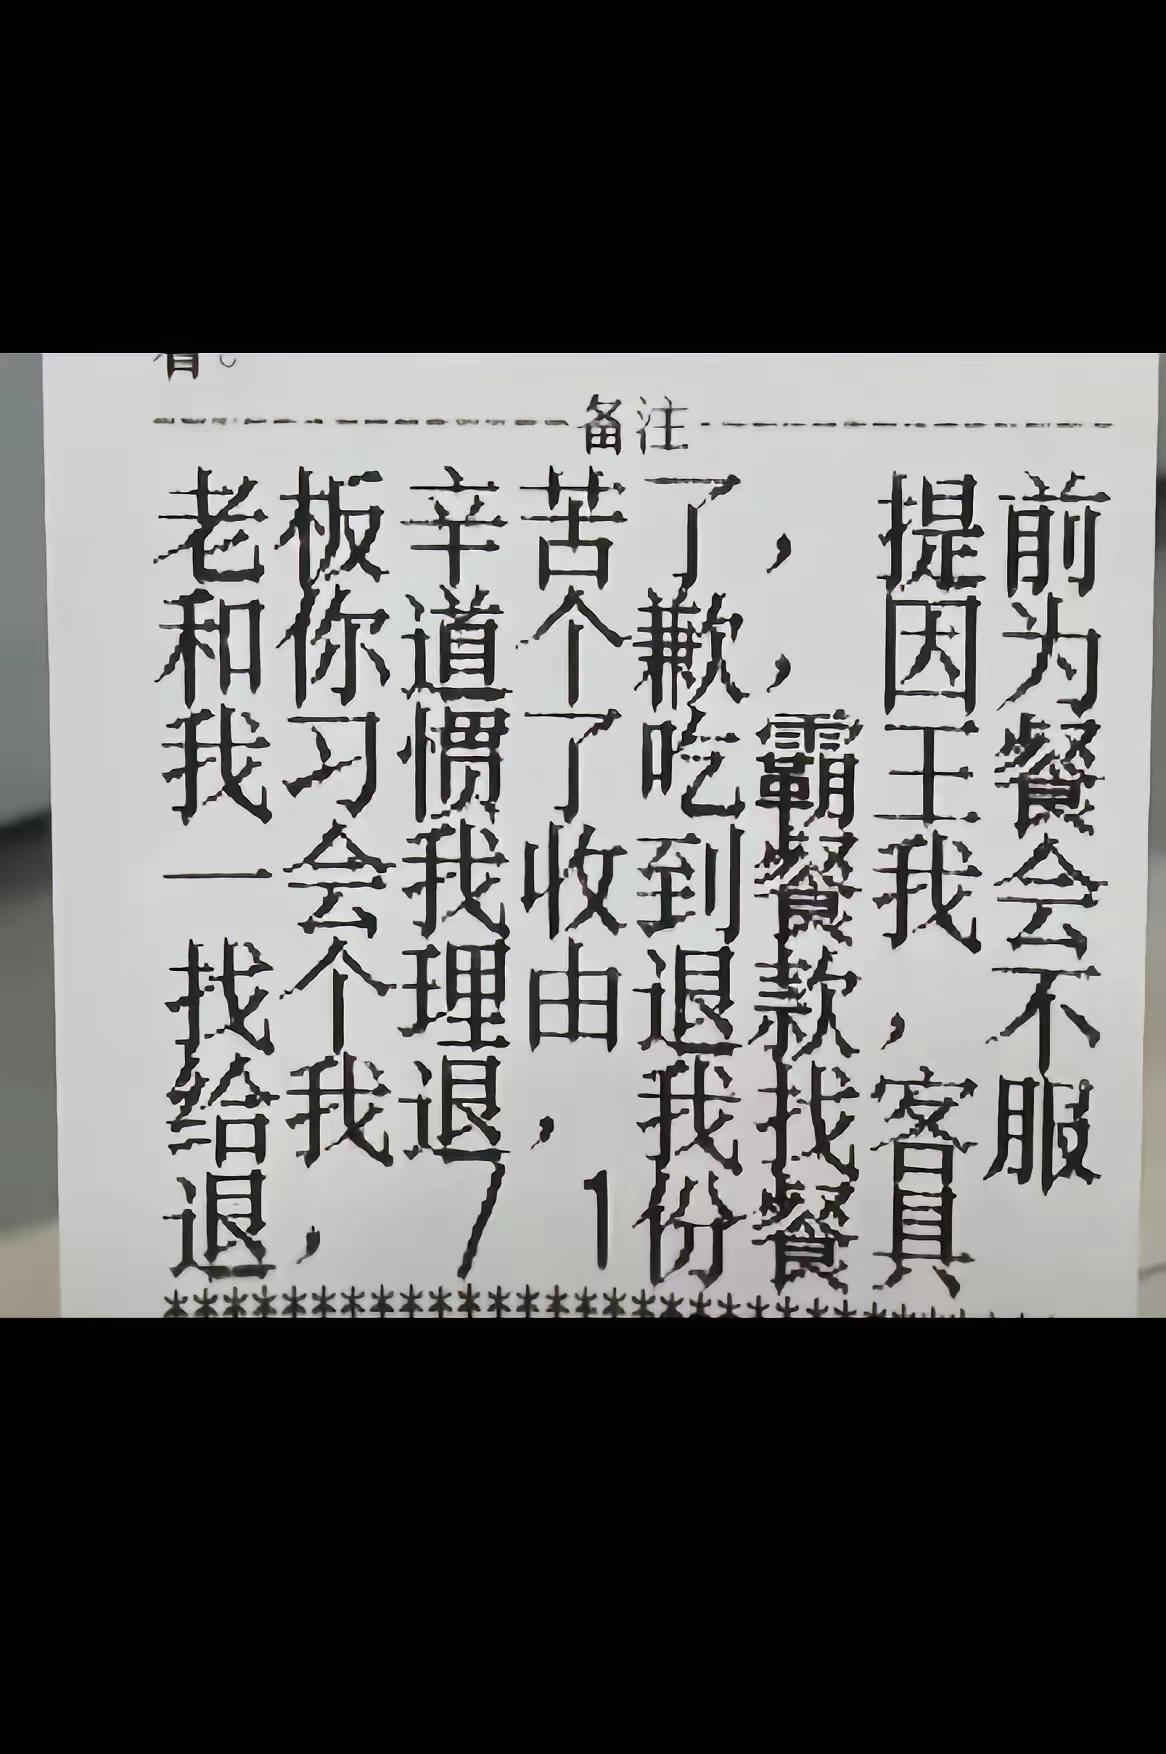 着。
------------------备注------------------
老板辛苦了，提前
和你道个歉，因为
我习惯了吃霸王餐
一会我收到餐我会
找个理由退款，不
给我退，我找客服
退，71份餐具
********************************